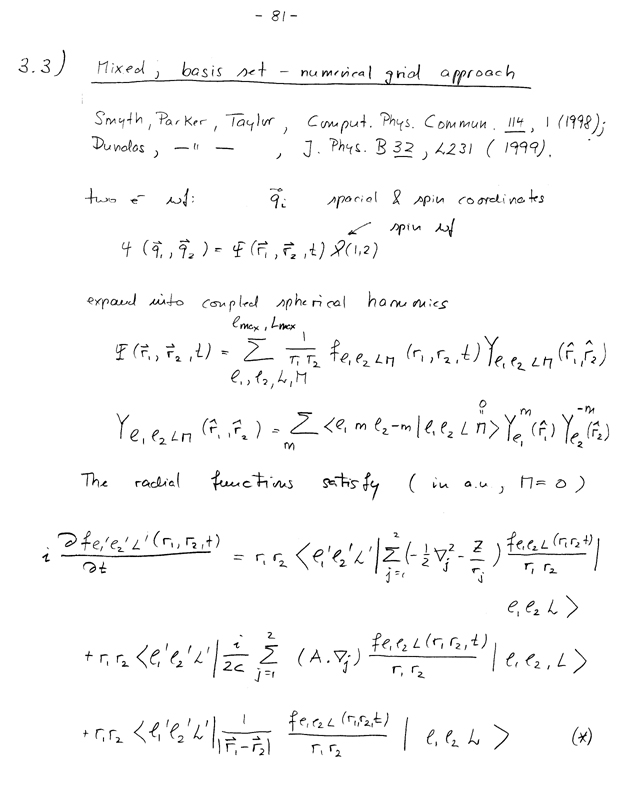 - 81 -
3.3) Mixed, basis set - numerical grid approach
Smyth, Parker, Taylor, Comput. Phys. Commun. 114, 1 (1998);
Dundas, — " — , J. Phys. B 32, L231 (1999).
two e⁻ wf: q⃗ᵢ spacial & spin coordinates
spin wf
Ψ(q⃗₁, q⃗₂) = Ψ(r⃗₁, r⃗₂, t) χ(1,2)
expand into coupled spherical harmonics
ℓmax, Lmax
Ψ(r⃗₁, r⃗₂, t) = Σ 1/(r₁ r₂) f_{ℓ₁ℓ₂LM}(r₁, r₂, t) Y_{ℓ₁ℓ₂LM}(r̂₁, r̂₂)
ℓ₁, ℓ₂, L, M
0
"
Y_{ℓ₁ℓ₂LM}(r̂₁, r̂₂) = Σ_m <ℓ₁ m ℓ₂ -m | ℓ₁ ℓ₂ L M> Y_{ℓ₁}^{m}(r̂₁) Y_{ℓ₂}^{-m}(r̂₂)
The radial functions satisfy (in a.u, M=0)
i ∂f_{ℓ₁'ℓ₂'L'}(r₁, r₂, t)/∂t = r₁ r₂ <ℓ₁'ℓ₂'L'| Σ_{j=1}^{2} (-½ ∇ⱼ² - Z/rⱼ) f_{ℓ₁ℓ₂L}(r₁ r₂ t)/(r₁ r₂) |
ℓ₁ ℓ₂ L >
+ r₁ r₂ <ℓ₁'ℓ₂'L'| i/2c Σ_{j=1}^{2} (A·∇ⱼ) f_{ℓ₁ℓ₂L}(r₁ r₂, t)/(r₁ r₂) | ℓ₁ ℓ₂, L >
+ r₁ r₂ <ℓ₁'ℓ₂'L'| 1/|r⃗₁-r⃗₂| f_{ℓ₁ℓ₂L}(r₁, r₂, t)/(r₁ r₂) | ℓ₁ ℓ₂ L > (*)